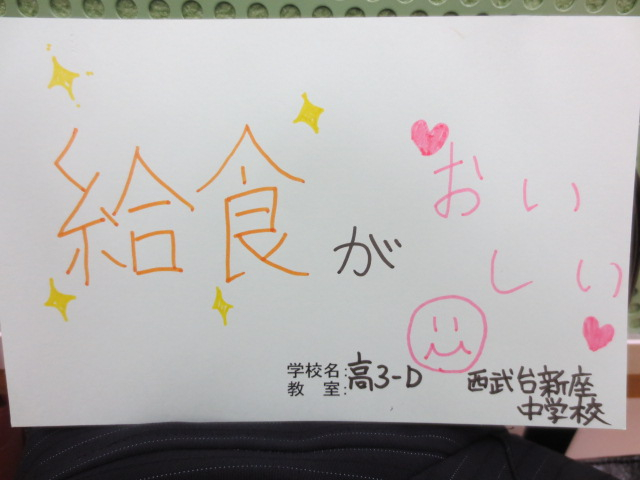 給食が
おい
しい
学校名:高3-D 西武台新座
教 室: 中学校